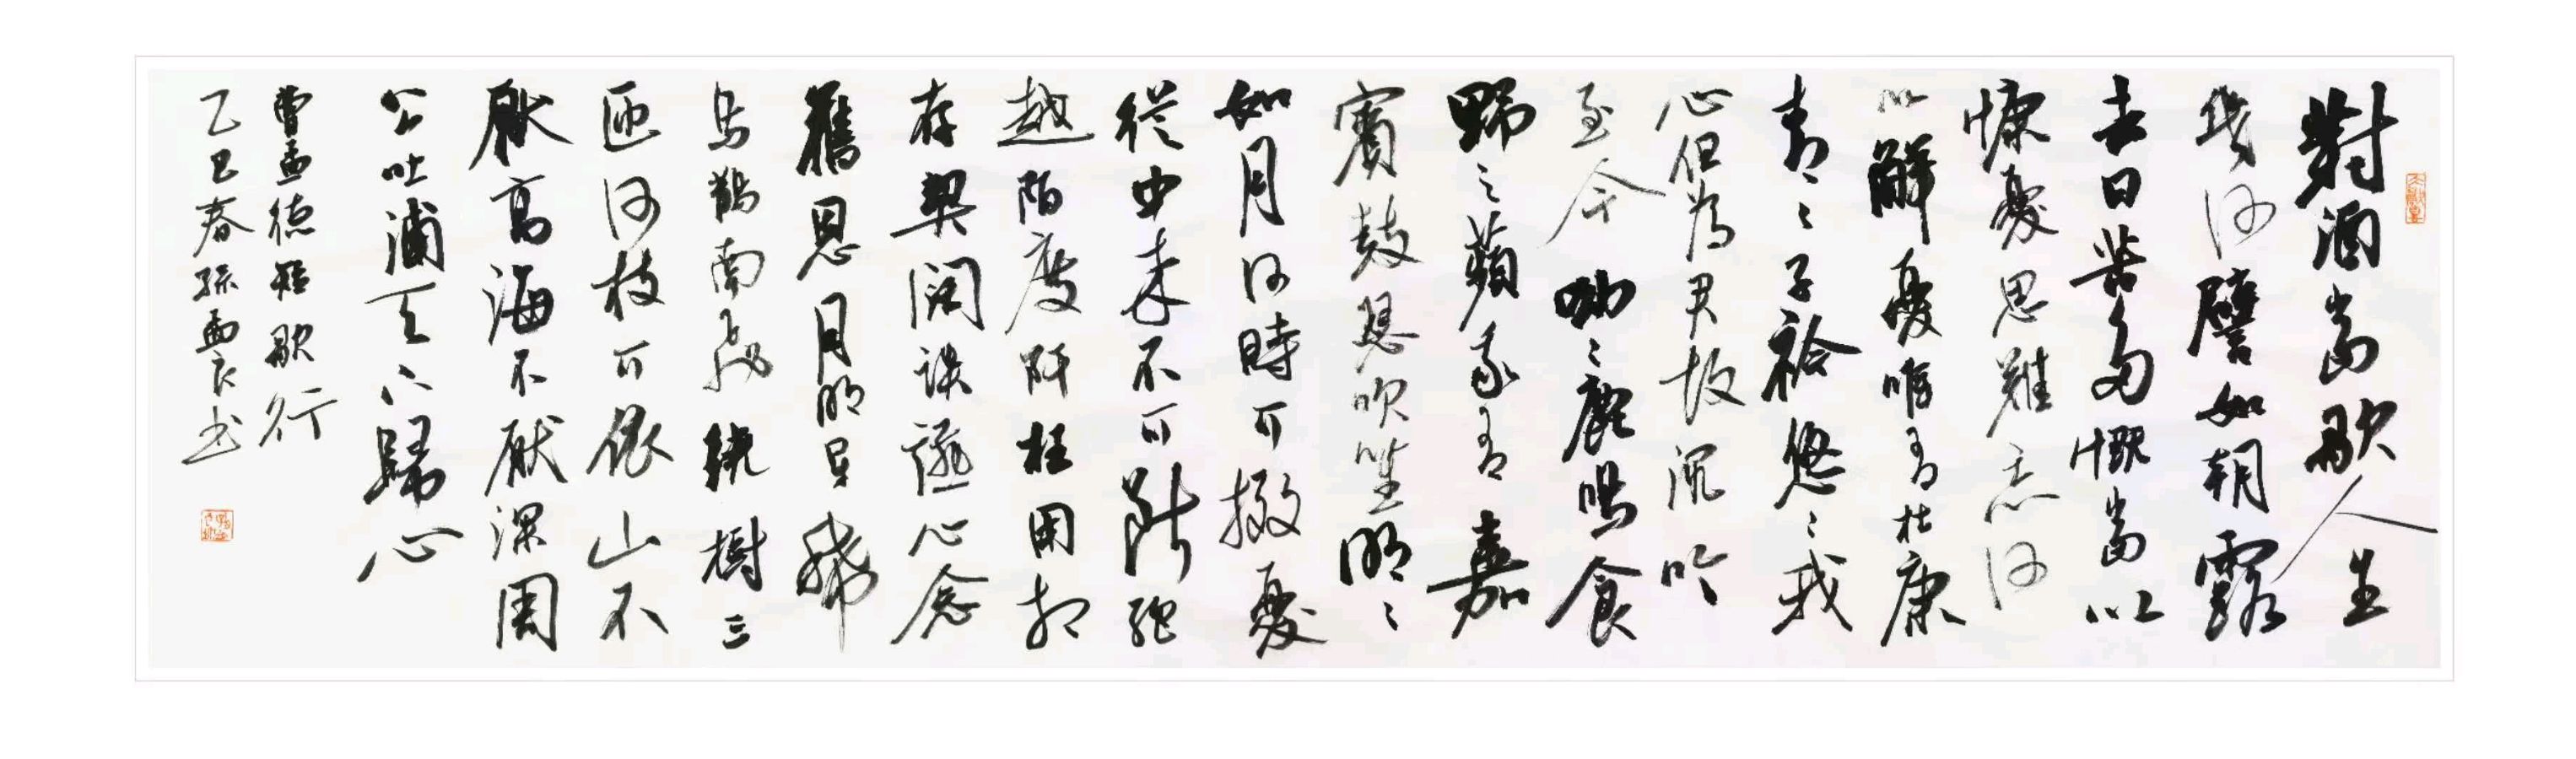 對酒當歌人生
幾何譬如朝露
去日苦多慨當以
慷憂思難忘何
以解憂唯有杜康
青〻子衿悠〻我
心但為君故沉吟
至今呦〻鹿鳴食
野之蘋我有嘉
賓鼓瑟吹笙明〻
如月何時可掇憂
從中來不可斷絕
越陌度阡枉用相
存契闊談讌心念
舊恩月明星稀
烏鵲南飛繞樹三
匝何枝可依山不
厭高海不厭深周
公吐浦天下歸心
曹孟德短歌行
乙巳春孫良书